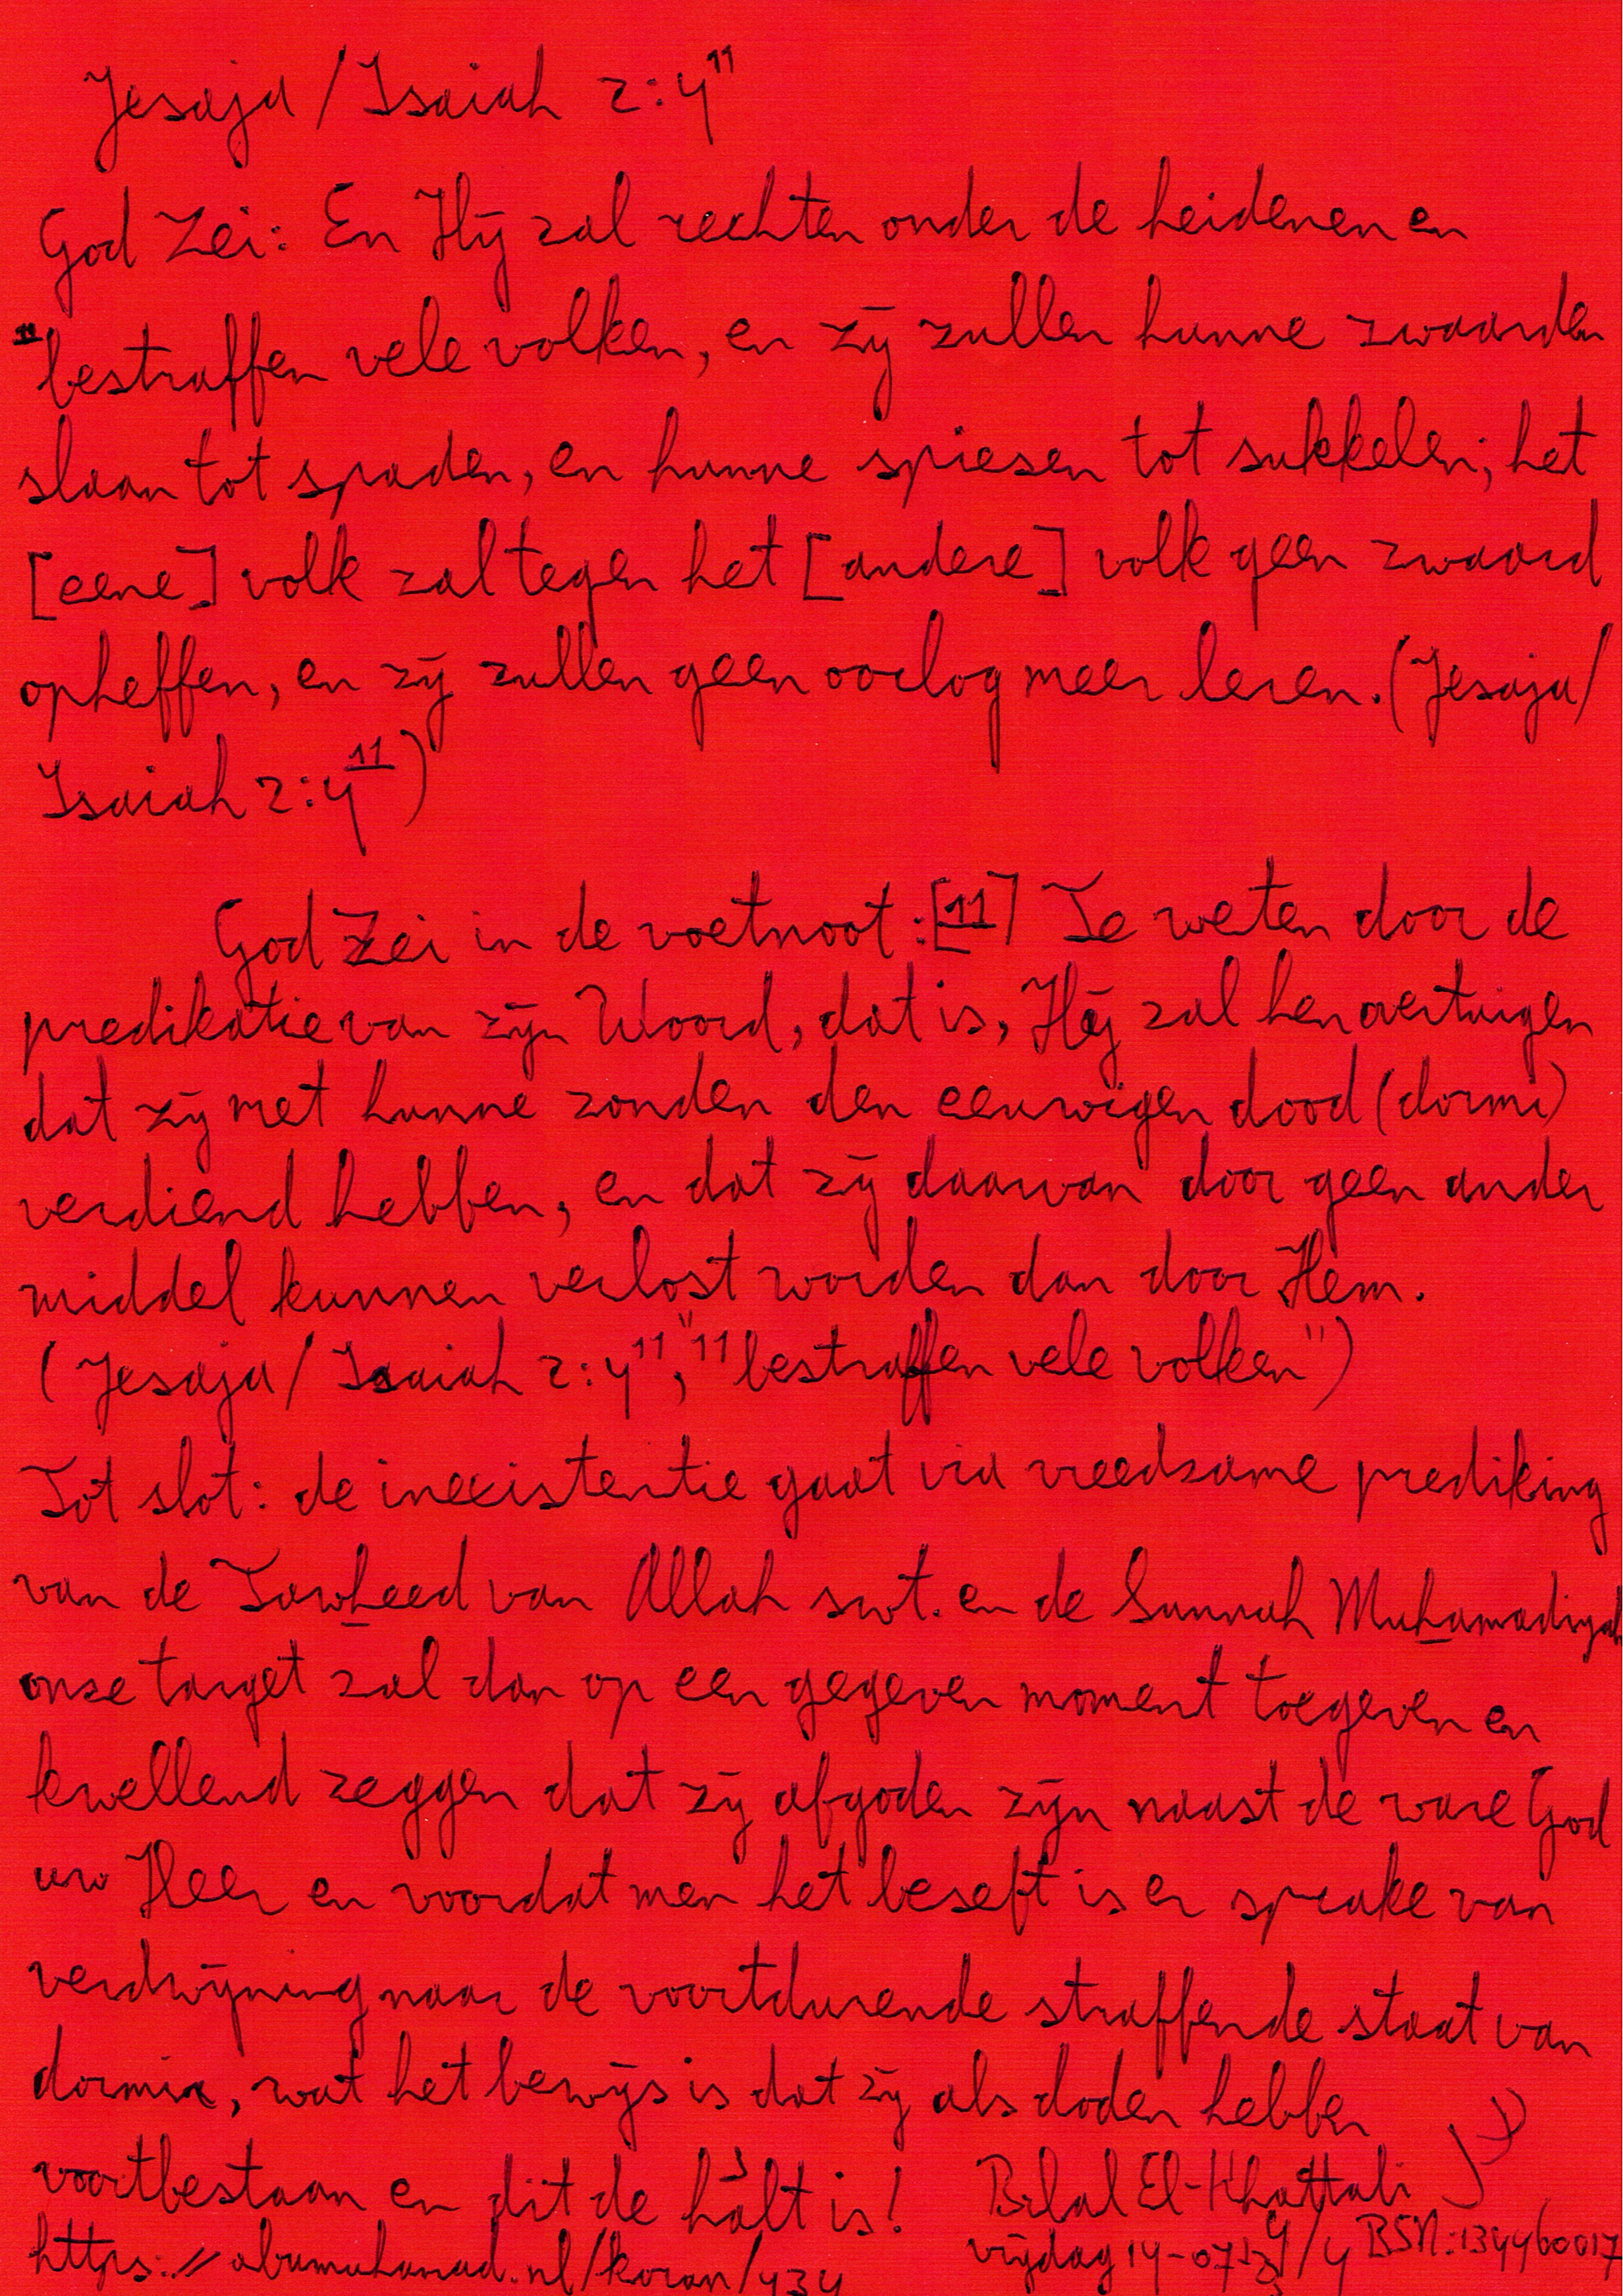 Jesaja / Isaiah 2:4¹¹
God Zei: En Hij zal rechten onder de heidenen en
¹¹bestraffen vele volken, en zij zullen hunne zwaarden
slaan tot spaden, en hunne spiesen tot sukkelen; het
[eene] volk zal tegen het [andere] volk geen zwaard
opheffen, en zij zullen geen oorlog meer leren. (Jesaja/
Isaiah 2:4¹¹)
God Zei in de voetnoot: [11] Te weten door de
predikatie van zijn Woord, dat is, Hij zal hen overtuigen
dat zij met hunne zonden den eeuwigen dood (dormi)
verdiend hebben, en dat zij daarvan door geen ander
middel kunnen verlost worden dan door Hem.
(Jesaja / Isaiah 2:4¹¹, "¹¹bestraffen vele volken")
Tot slot: de inexistentie gaat via vreedzame prediking
van de Tawheed van Allah swt. en de Sunnah Muhamadiyah
onze target zal dan op een gegeven moment toegeven en
kwellend zeggen dat zij afgoden zijn naast de ware God
uw Heer en voordat men het beseft is er sprake van
verdwijning naar de voortdurende straffende staat van
dormix, wat het bewijs is dat zij als doden hebben
voortbestaan en dit de halt is! Bilal El-Khattabi
https://abumuhamad.nl/koran/434 vrijdag 14-07- /4 BSN: 134460017